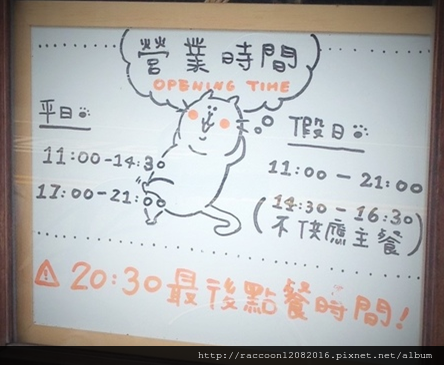 營業時間
OPENING TIME
平日
11:00-14:30
17:00-21:00
假日
11:00-21:00
(14:30-16:30)
不供應主餐
⚠20:30最後點餐時間!
http://raccoon12082016.pixnet.net/album